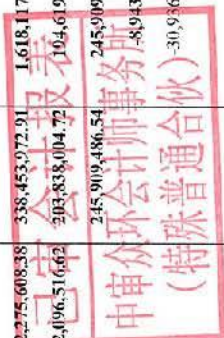 2,275,608.38 338,453,972.91 1,618,117
2,096,516.62 203,838,004.72 194,619
245,909,486.54 245,909
-8,943
-30,936
已审会计报表
中审众环会计师事务所
(特殊普通合伙)